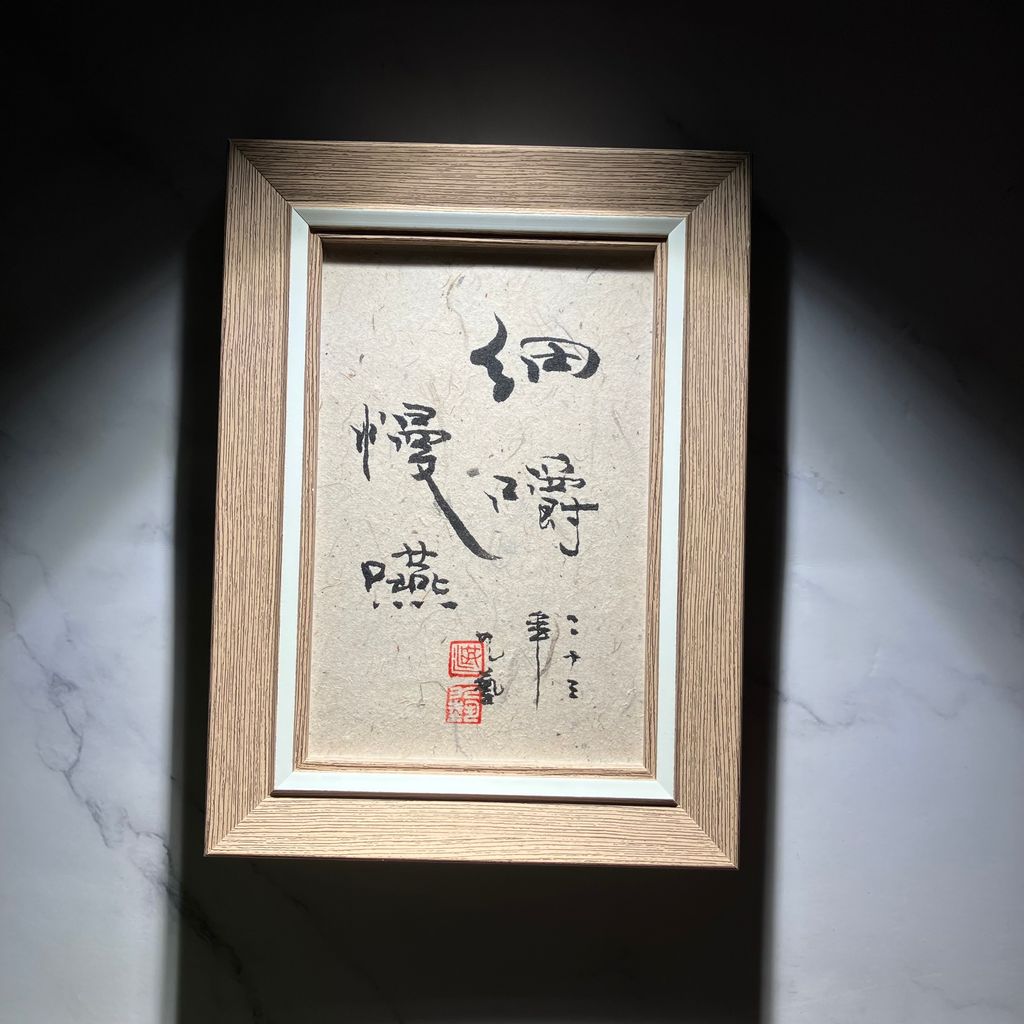 細嚼
慢嚥
二十三
年